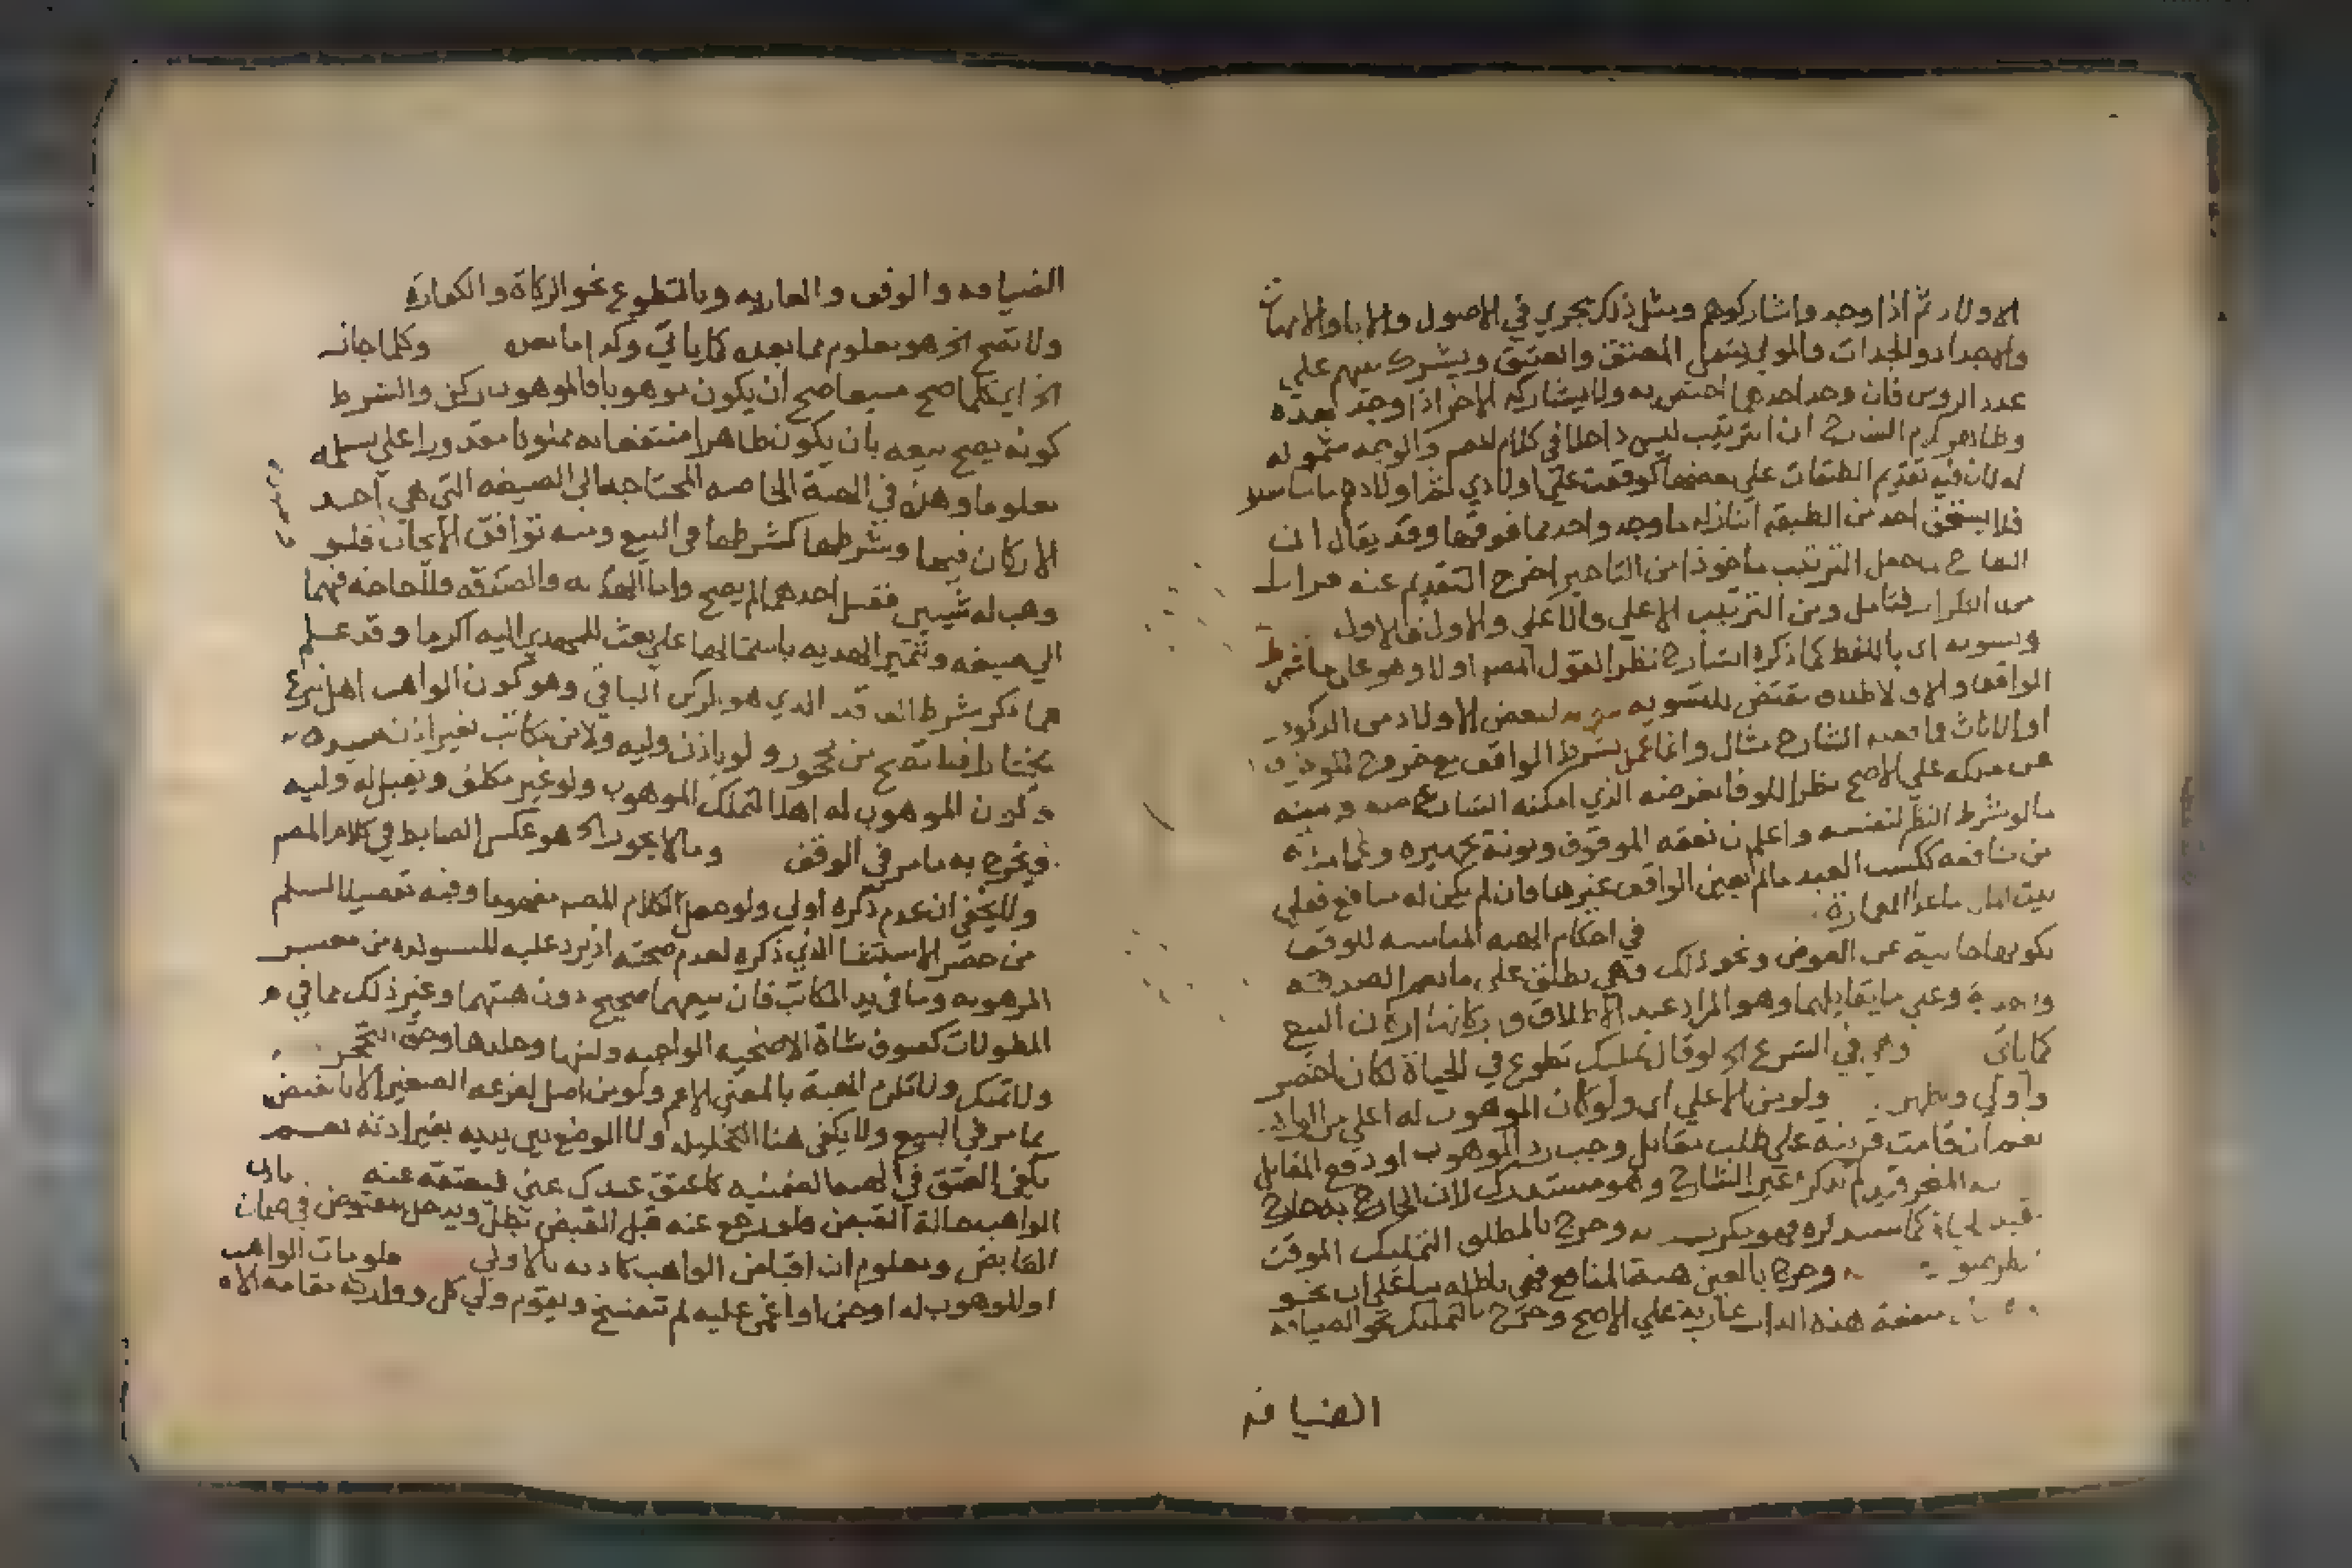 الاولاد ثم اذا وجدوا شاركوهم ومثل ذلك يجري في الاصول والابا والامهات
والاجداد والجدات والمولى يشمل المعتق والعتيق ويشترك بينهم على
عدد الروس فان وجد احدهما اختص به ولا يشاركه الاخر اذا وجد بعده
ان الترتيب ليس داخلا في كلام المصم والوجه شموله
فيه تقديم الطبقات على بعضها كوقفت على اولادي ثم اولادهم ما تناسلوا
فلا يستحق احد من الطبقة النازلة ما وجد واحد مما فوقها وقد يقال ان
الترتيب ماخوذا من التاخير اخرج التقديم عنه
فتامل ومن الترتيب الاعلى فالاعلى والاول فالاول
وتسويه اي باللفظ كما ذكره الشارح نظرا لقول المصم اولا وهو على ما شرط
الواقف للتسويه لبعض الاولاد من الذكور
او الاناث الشارح مثال وانما عمل بشرط الواقف مع خروج الموقوف
عن ملكه على الاصح نظرا للوفا بغرضه الذي امكنه الشارع منه ومنه
ما لو شرط النظر لنفسه واعلم ان نفقة الموقوف ومونة تجهيزه وعمارته
من منافعه ككسب العبد ما لم يعين الواقف غيرها فان لم يكن له منافع فعلى
بيت المال ما عدا العمارة
في احكام الهبه المناسبه للوقف
العوض ونحو ذلك وهي تطلق على ما يعم الصدقه
وعلى ما يقابلهما وهو المراد عند الاطلاق البيع
كما ياتي وهي في الشرع الخ لو قال تمليك تطوع في الحياة لكان اخصر
واولى ولو من الاعلى اي ولو كان الموهوب له اعلى من الواهب
نعم ان قامت قرينه على طلب مقابل وجب رد الموهوب او دفع المقابل
لم يذكره غير الشارح وهو مستدرك لان الخارج به خارج
وخرج بالمطلق التمليك الموقت
وخرج بالعين هبة المنافع فهي باطله
منفعة هذه الدار عارية على الاصح وخرج بالتمليك نحو الضيافه
الضيافه
الضيافه والوقف والعاريه وبالتطوع نحو الزكاة والكفارة
ولا تصح الخ هو معلوم مما بعده كما ياتي وكذا ما بعده وكلما جاز
الخ اي كلما صح مبيعا صح ان يكون موهوبا فالموهوب ركن والشرط
كونه يصح بيعه بان يكون طاهرا منتفعا به مملوكا مقدورا على تسلمه
معلوما وهذه في الهبة الخاصه المحتاجه الى الصيغه التي هي احد
الاركان فيها وشرطها كشرطها في البيع ومنه توافق الايجاب فلو
وهب له شيين فقبل احدهما لم يصح واما الهديه والصدقه فلا حاجه فيهما
الى صيغه وتتميز الهديه باستحالها على بعث للمهدى اليه اكراما وقد علم
مما ذكر شرط العاقد الذي هو الركن الباقي وهو كون الواهب اهل تبرع
مختارا فلا تصح من محجور ولو باذن وليه ولا من مكاتب بغير اذن سيده
وكون الموهوب له اهلا لتملك الموهوب ولو غير مكلف ويقبل له وليه
فيخرج به ما مر في الوقف وما لا يجوز الخ هو عكس الضابط في كلام المصم
ولا يخفى ان عدم ذكره اولى ولو جعل الكلام المصم مفهوما وفيه تفصيلا لسلم
من حصر الاستثنا الذي ذكره لعدم صحته اذ يرد عليه المستولده من معسر
المرهونه وما في يد المكاتب فان بيعهما صحيح دون هبتهما وغير ذلك مما في
المطولات كصوف شاة الاضحيه الواجبه ولبنها وجلدها وحق التحجر
ولا تملك ولا تلزم الهبة بالمعنى الاعم ولو من اصل لفرعه الصغير الا بالقبض
بما مر في البيع ولا يكفي هنا التخليه ولا الوضع بين يديه بغير اذنه نعم
يكفي العتق في الهبه الضمنيه كاعتق عبدك عني فيعتقه عنه باذن
الواهب حالة القبض فلو رجع عنه قبل القبض بطل ويدخل مقبوض في ضمان
القابض ومعلوم ان اقباض الواهب كاذنه بالاولى فلو مات الواهب
او الموهوب له او جن او اغمي عليه لم تنفسخ ويقوم ولي كل ووارثه مقامه الا